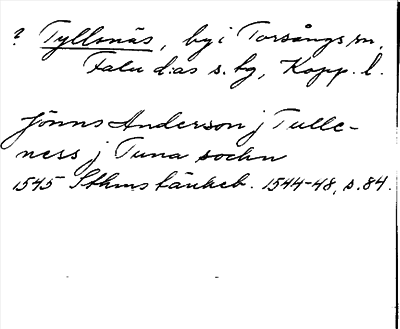 ? Tyllsnäs, by i Torsångs sn,
Falu d:as s. hg, Kopp. l.
Jöns Anderson j Tulle-
ness j Tuna sochn
1545 Sthms tänkeb. 1544-48, s. 84.